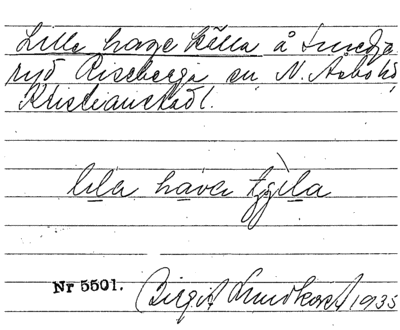 Lilla hage källa å Smedja
ryd Riseberga sn, N. Åsbo hd,
Kristianstad l.
lila hava tjyla
Nr 5501. Birgit Lundkvist 1935